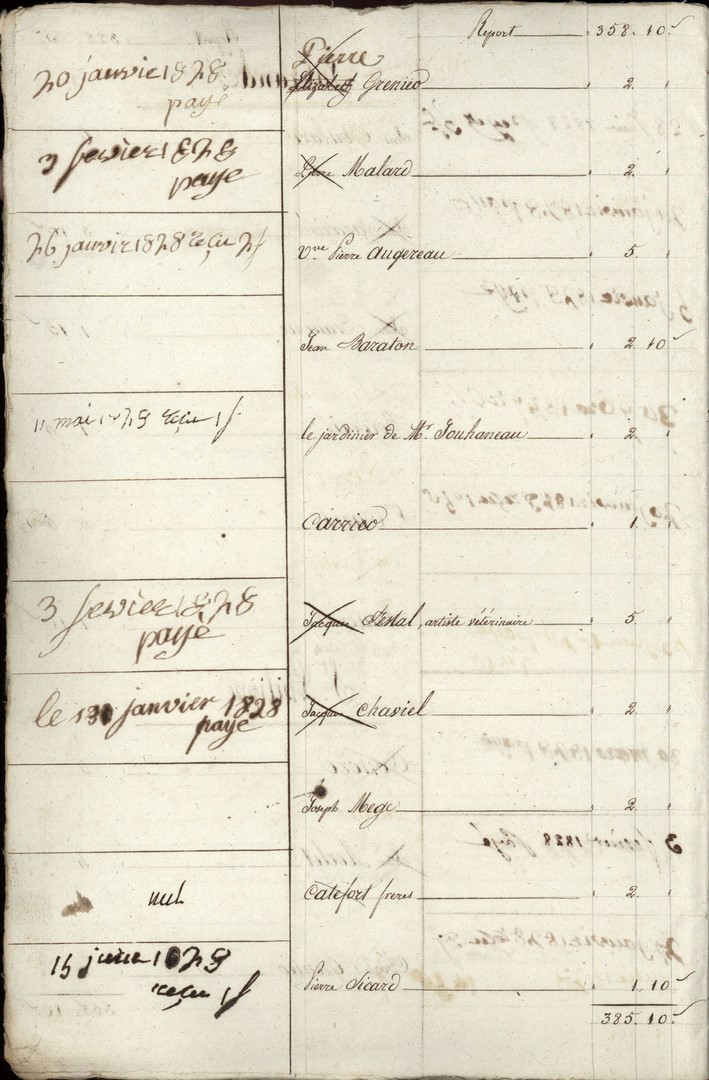 Report 358. 10.
Pierre
20 janvie 1828 Grenier 2. "
payé
3 fevrier 1828 Pierre Malard 2. "
payé
26 janvir 1828 reçu 2f Vve Pierre Augereau 5. "
Jean Baraton 2. 10
11 mai 1828 reçu 1f le jardinier de Mr. Jouhaneau 2. "
Carrier 1. "
3 fevrier 1828 Jacques Festal, artiste vétérinaire 5. "
payé
le 30 janvier 1828 Jacques Chasiel 2. "
payé
Joseph Mege 2. "
nul Catefort freres 2. "
15 juin 1828 Pierre Sicard 1. 10
reçu 1f
385. 10.